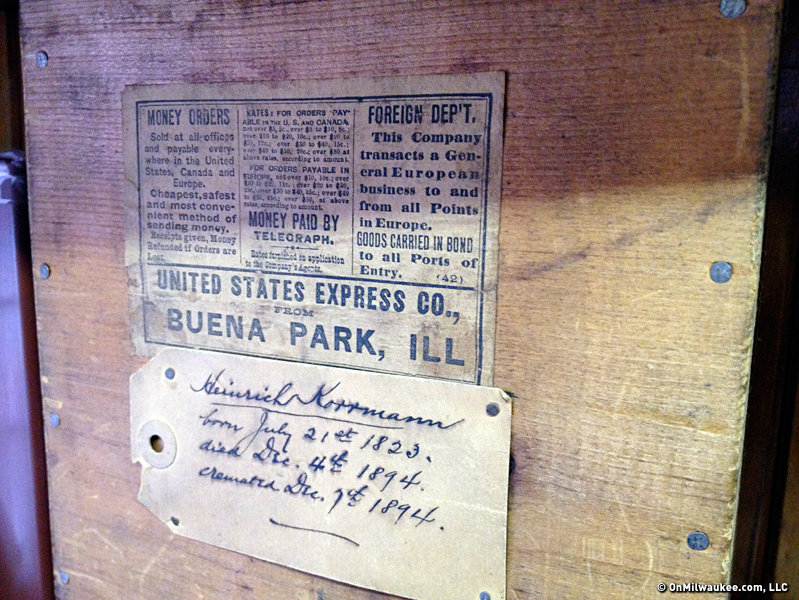 MONEY ORDERS
Sold at all offices
and payable every-
where in the United
States, Canada and
Europe.
Cheapest, safest
and most conve-
nient method of
sending money.
Receipts given, Money
Refunded if Orders are
Lost.
RATES: FOR ORDERS PAY-
ABLE IN THE U. S. AND CANADA,
not over $5, 5c.; over $5 to $10, 8c.;
over $10 to $20, 10c.; over
above rates, according to amount.
FOR ORDERS PAYABLE IN
EUROPE, not over $10, 10c.; over
rates, according to amount.
MONEY PAID BY
TELEGRAPH.
Rates furnished on application
to the Company's Agents.
FOREIGN DEP'T.
This Company
transacts a Gen-
eral European
business to and
from all Points
in Europe.
GOODS CARRIED IN BOND
to all Ports of
Entry. (42)
UNITED STATES EXPRESS CO.,
FROM
BUENA PARK, ILL
Heinrich Korrmann
born July 21st 1823.
died Dec. 4th 1894.
cremated Dec. 7th 1894.
© OnMilwaukee.com, LLC